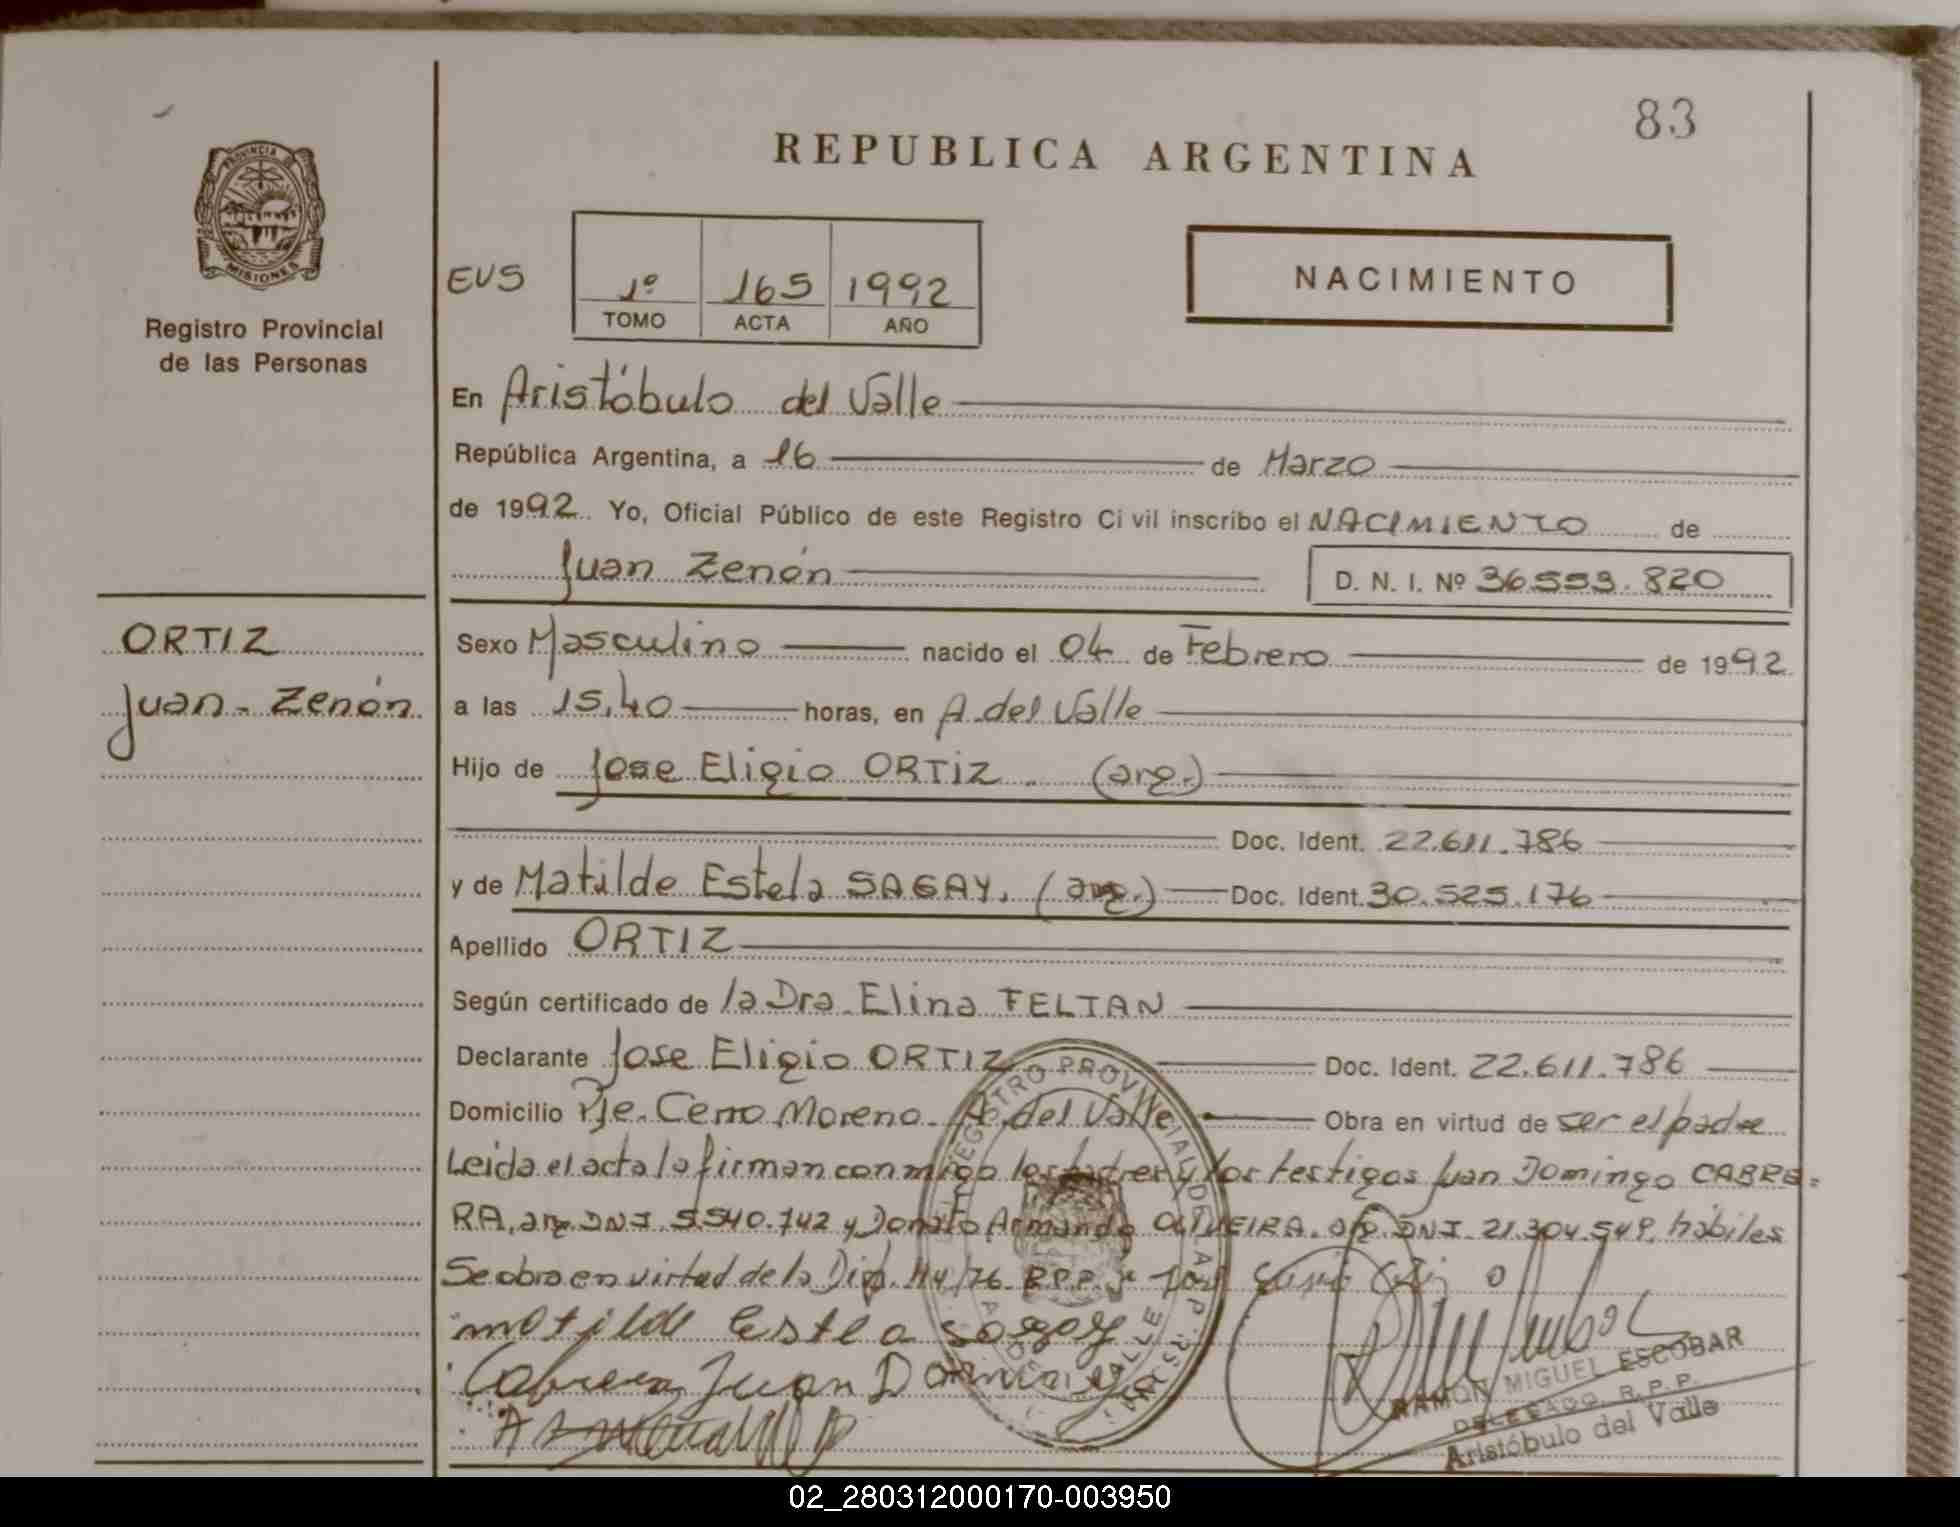 83
REPUBLICA ARGENTINA
PROVINCIA D
MISIONES
Registro Provincial
de las Personas
EVS
1º 165 1992
TOMO ACTA AÑO
NACIMIENTO
En Aristóbulo del Valle
República Argentina, a 16 de Marzo
de 1992. Yo, Oficial Público de este Registro Ci vil inscribo el NACIMIENTO de
Juan Zenón
D. N. I. Nº 36.553.820
ORTIZ
Juan - Zenón
Sexo Masculino nacido el 04 de Febrero de 1992
a las 15,40 horas, en A. del Valle
Hijo de Jose Eligio ORTIZ. (arg.)
Doc. Ident. 22.611.786
y de Matilde Estela SAGAY. (arg.) Doc. Ident. 30.525.176
Apellido ORTIZ
Según certificado de la Dra. Elina FELTAN
Declarante Jose Eligio ORTIZ Doc. Ident. 22.611.786
Domicilio Pje. Cerro Moreno. A. del Valle Obra en virtud de ser el padre
Leida el acta la firman conmigo los padres y los testigos Juan Domingo CABRE=
RA, arg. DNI 5.540.742 y Donato Armando OLIVEIRA. arg. DNI. 21.304.549. hábiles
Se obra en virtud de la Disp. 44/76 R.P.P.
matilde Estela sagay
Cabrera Juan Domingo
REGISTRO PROVINCIAL DE LA P
RAMON MIGUEL ESCOBAR
DELEGADO R.P.P.
Aristóbulo del Valle
02_280312000170-003950